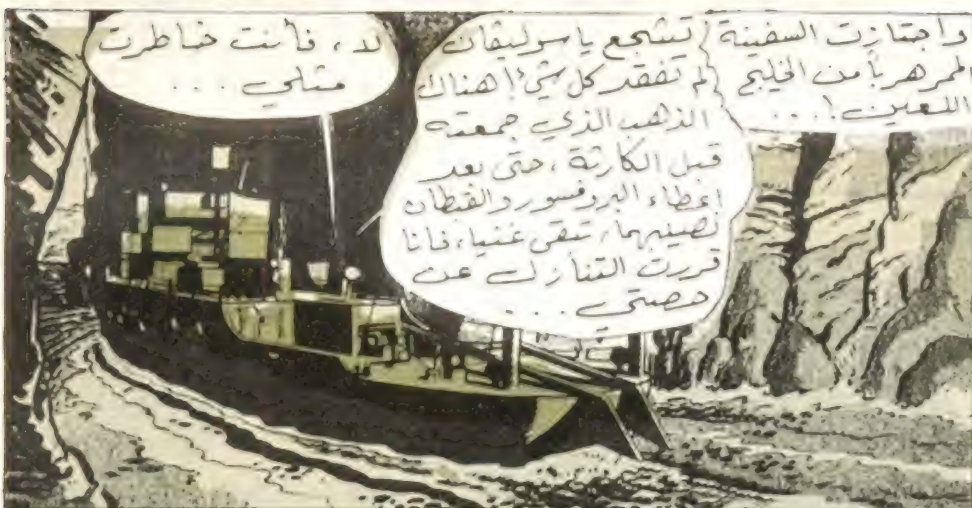 واجتازت السفينة
الممر هرباً من الخليج
اللعين!...
تشجع يا سوليفان
لم تفقد كل شيء! هناك
الذهب الذي جمعته
قبل الكارثة، حتى بعد
إعطاء البروفسور والقبطان
نصيبهما، تبقى غنيا، فانا
قررت التنازل عن
حصتي...
لا، فأنت خاطرت
مثلي...